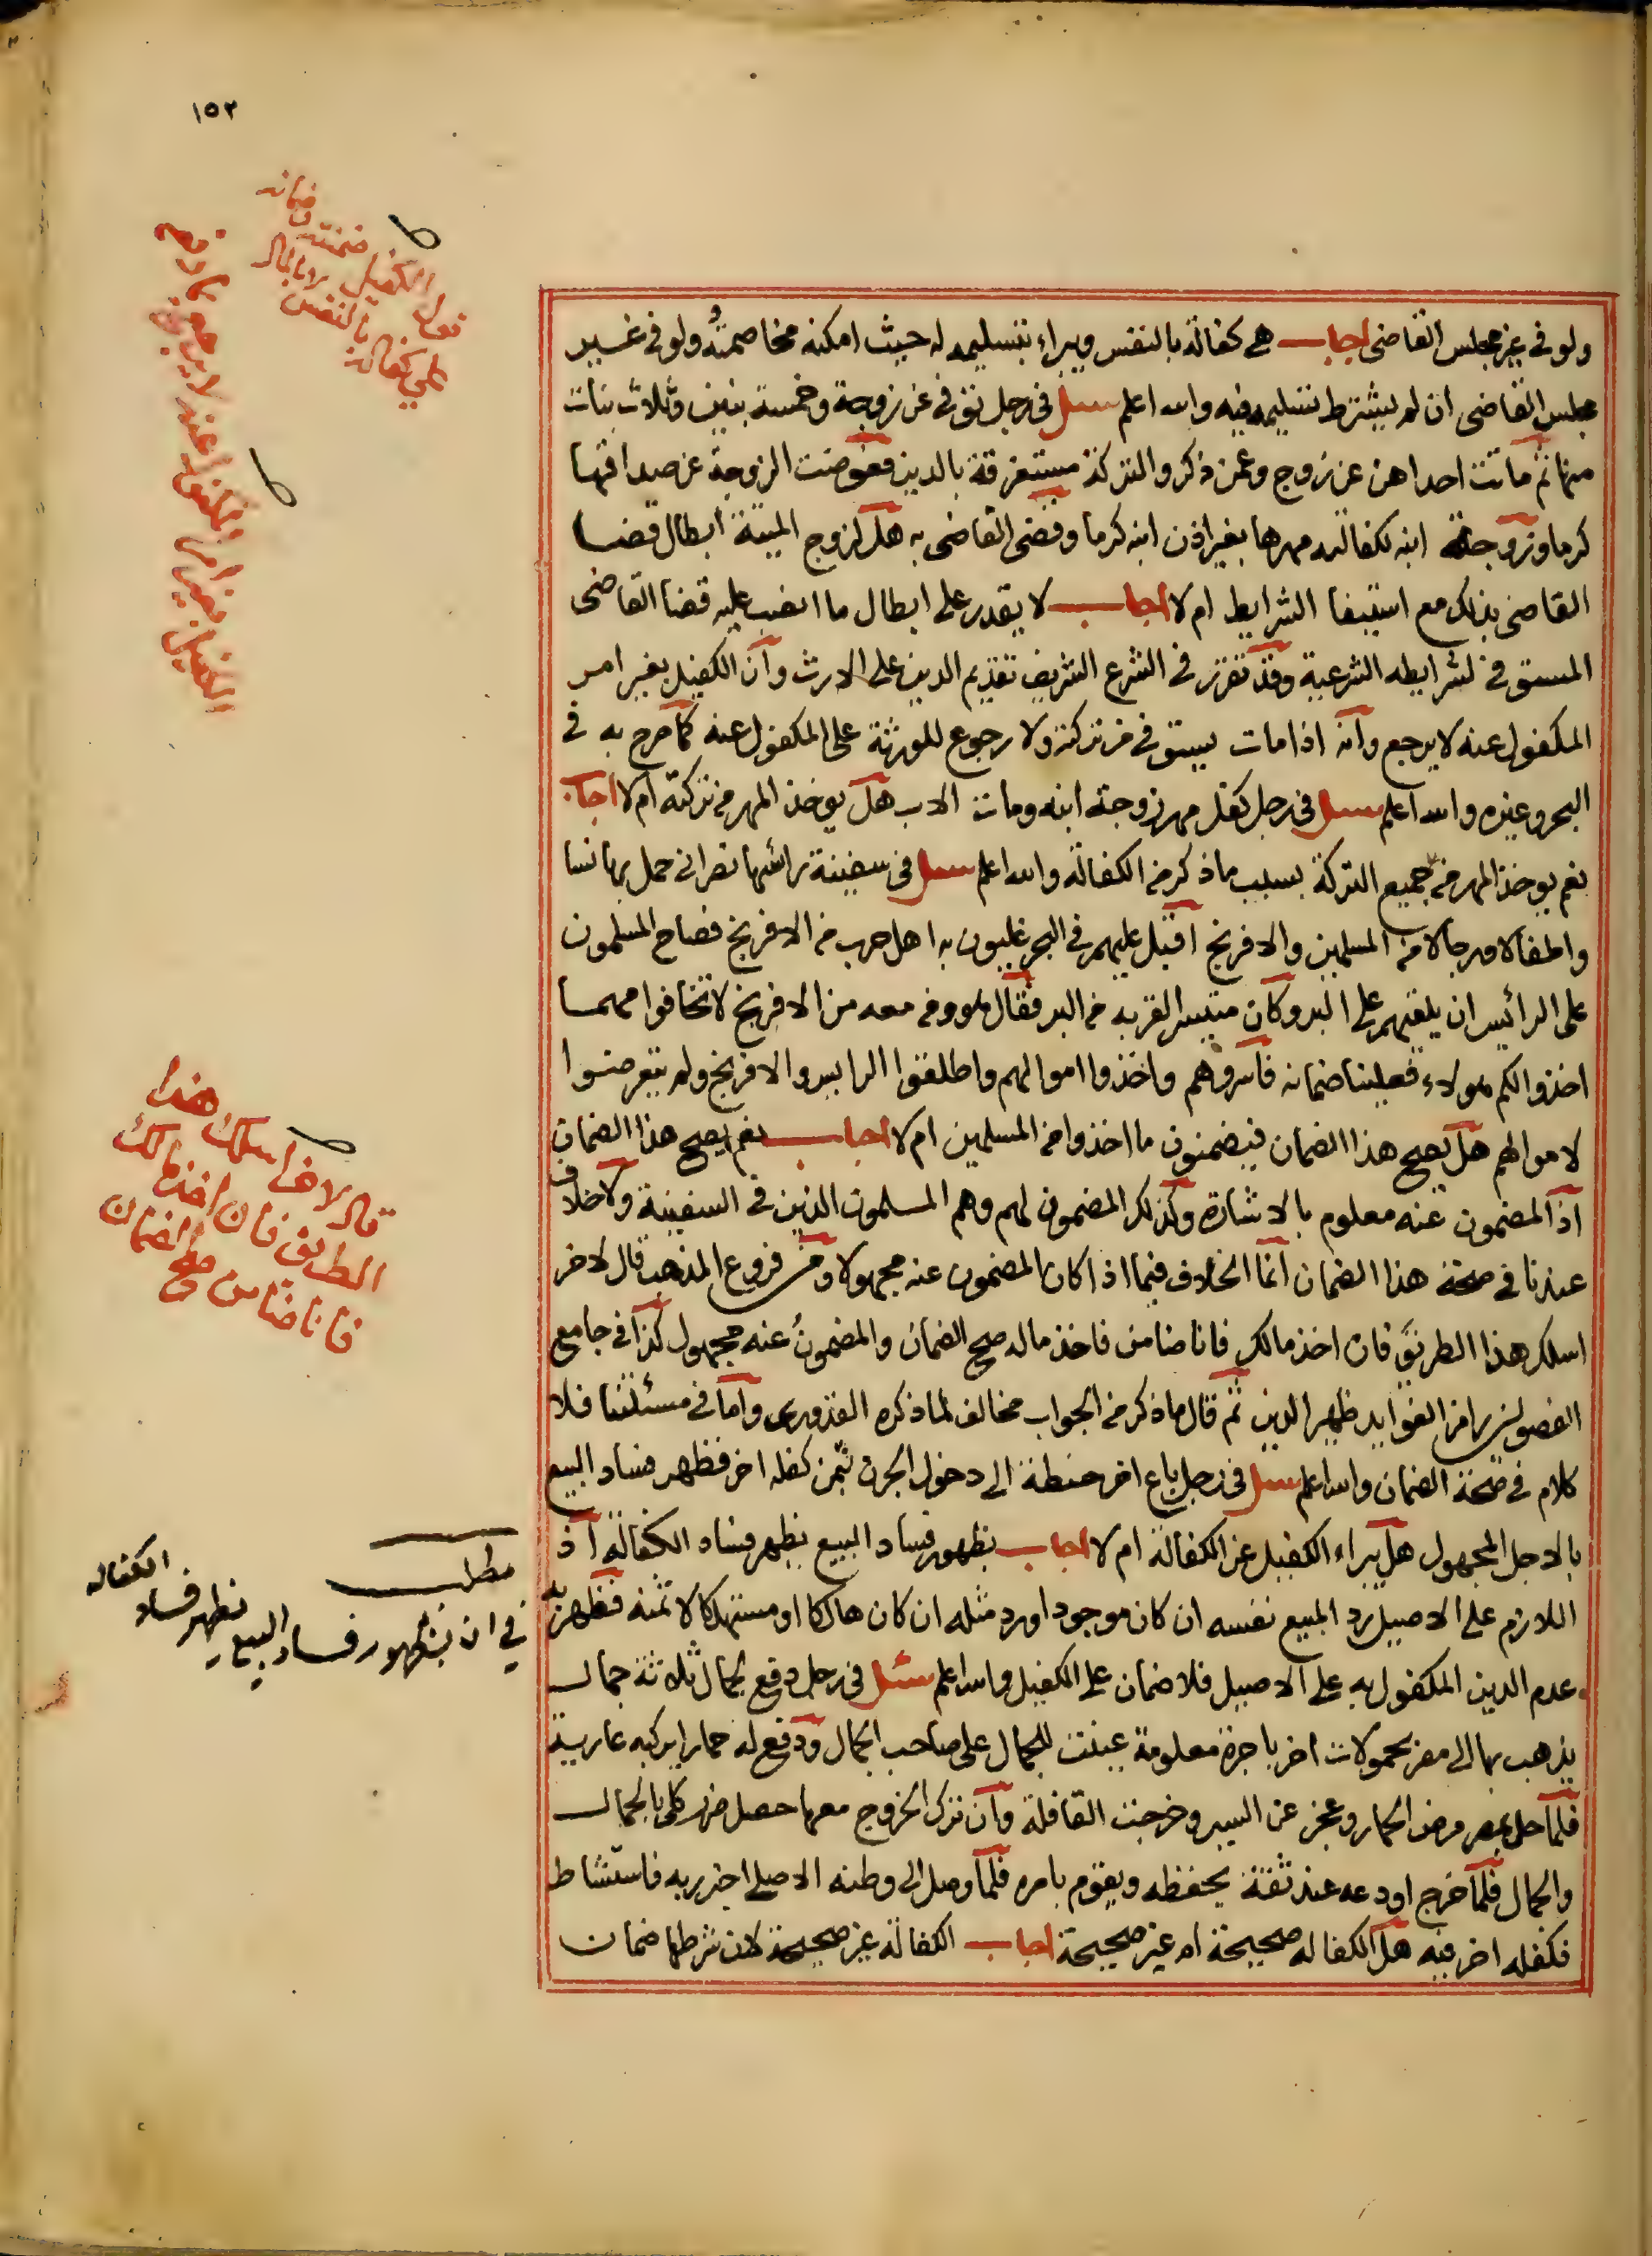 ١٥٢
ولو في غير مجلس القاضي اجاب هي كفالة بالنفس ويبراء بتسليمه له حيث امكنه مخاصمته ولو في غير
مجلس القاضي ان لم يشترط تسليمه فيه والله اعلم سئل في رجل توفى عن زوجة وخمسة بنين وثلاث بنات
منها ثم ماتت احداهن عن زوج وعمن ذكر والتركة مستغرقة بالدين فعوضت الزوجة عن صداقها
كرما وزوجة ابنه لكفالته مهرها بغير اذن ابنه كرما وقضى القاضي به هل لزوج الميتة ابطال قضا
القاضي بذلك مع استيفا الشرايط ام لا اجاب لا يقدر على ابطال ما انصب عليه قضا القاضي
المستوفي لشرايطه الشرعية وقد تقرر في الشرع الشريف تقديم الدين على الارث وان الكفيل بغير امر
المكفول عنه لا يرجع وانه اذا مات يستوفى من تركته ولا رجوع للورثة على المكفول عنه كما صرح به في
البحر وغيره والله اعلم سئل في رجل كفل مهر زوجة ابنه ومات الاب هل يوخذ المهر من تركته ام لا اجاب
نعم يوخذ المهر من جميع التركة بسبب ما ذكر من الكفالة والله اعلم سئل في سفينة رائسها نصراني حمل بها نسا
واطفالا ورجالا من المسلمين والافرنج اقبل عليهم في البحر غليون به اهل حرب من الافرنج فصاح المسلمون
على الرائيس ان يلقيهم على البر وكان متيسر القربه من البر فقال هو ومن معه من الافرنج لا تخافوا مهمسا
اخذوا لكم هولاء فعلينا ضمانه فاسروهم واخذوا اموالهم واطلقوا الرايس والافرنج ولم يتعرضوا
لاموالهم هل يصح هذا الضمان فيضمنون ما اخذوا من المسلمين ام لا اجاب نعم يصح هذا الضمان
اذ المضمون عنه معلوم بالاشارة وكذلك المضمون لهم وهم المسلمون الذين في السفينة ولا خلاف
عندنا في صحة هذا الضمان انما الخلاف فيما اذا كان المضمون عنه مجهولا ومن فروع المذهب قال لاخر
اسلك هذا الطريق فان اخذ مالك فانا ضامن فاخذ ماله صح الضمان والمضمون عنه مجهول كذا في جامع
الفصولين رامز الفوايد ظهير الدين ثم قال ما ذكر من الجواب مخالف لما ذكره القدوري واما في مسئلتنا فلا
كلام في صحة الضمان والله اعلم سئل في رجل باع اخر حنطة الى دخول الجرن بثمن كفله اخر فظهر فساد البيع
بالاجل المجهول هل يبراء الكفيل عن الكفالة ام لا اجاب بظهور فساد البيع يظهر فساد الكفالة اذ
اللازم على الاصيل رد المبيع نفسه ان كان موجودا ورد مثله ان كان هالكا او مستهلكا لا ثمنه فظهر به
عدم الدين المكفول به على الاصيل فلا ضمان على الكفيل والله اعلم سئل في رجل دفع لجمال ثلاثة جمال
يذهب بها الى مصر بحمولات اخر باجرة معلومة عينت للجمال على صاحب الجمال ودفع له حمارا يركبه عارية
فلما حل بمصر مرض الحمار وعجز عن السير وخرجت القافلة وان ترك الخروج معها حصل ضرر كلي بالجمال
والجمال فلما خرج اودعه عند ثقة يحفظه ويقوم بامره فلما وصل الى وطنه الاصلي اخبر ربه فاستشاط
فكفله اخر فيه هل الكفاله صحيحة ام غير صحيحة اجاب الكفالة غير صحيحة لان شرطها ضمان
قول الكفيل ضمنته وضمانه
على كفالة بالنفس
المكفول عنه لا يرجع
الكفيل بغير امر
قال لاخر اسلك هذا
الطريق فان اخذ مالك
فانا ضامن صح الضمان
مطلب
في ان بظهور فساد البيع يظهر فساد الكفاله